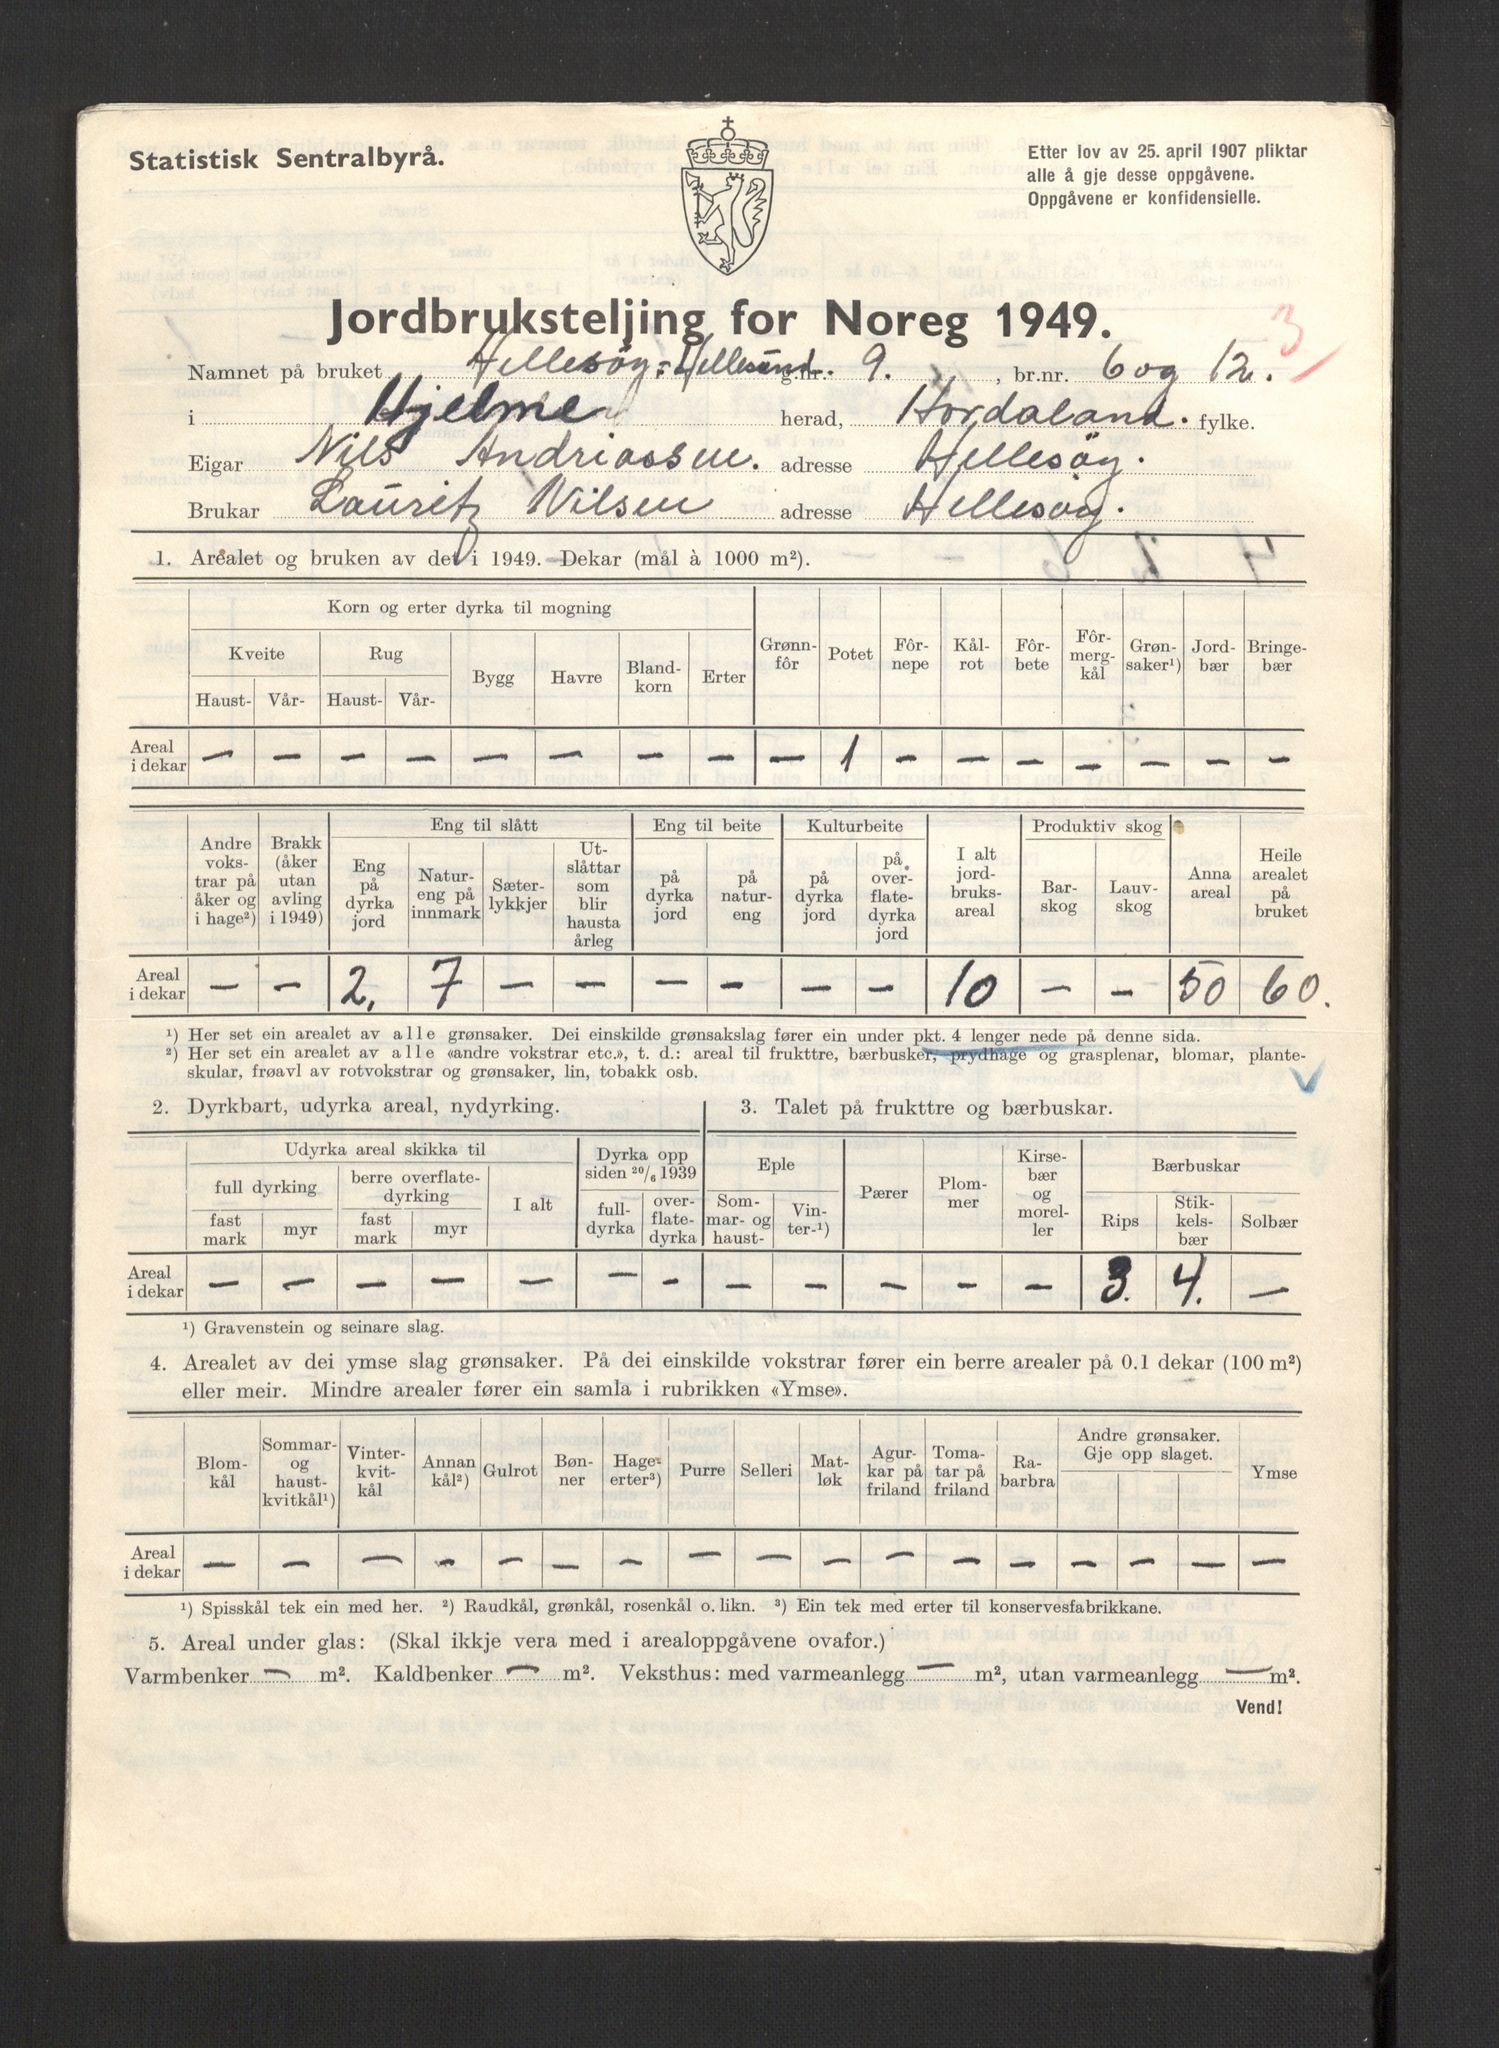 Statistisk Sentralbyrå.
Etter lov av 25. april 1907 pliktar
alle å gje desse oppgåvene.
Oppgåvene er konfidensielle.
Jordbruksteljing for Noreg 1949.
3
Namnet på bruket Hellesöy = Hellesund. g.nr. 9. , br.nr. 6 og 12.
i Hjelme herad, Hordaland. fylke.
Eigar Nils Andriassen. adresse Hellesöy.
Brukar Lauritz Nilsen adresse Hellesöy.
1. Arealet og bruken av det i 1949. Dekar (mål à 1000 m²).
Korn og erter dyrka til mogning
Kveite Rug Bygg Havre Bland-korn Erter Grønn-fôr Potet Fôr-nepe Kål-rot Fôr-bete Fôr-merg-kål Grøn-saker¹) Jord-bær Bringe-bær
Haust- Vår- Haust- Vår-
Areal i dekar — — — — — — — — — 1 — — — — — — —
Andre voks-trar på åker og i hage²) Brakk (åker utan avling i 1949) Eng til slått Eng til beite Kulturbeite I alt jord-bruks-areal Produktiv skog Anna areal Heile arealet på bruket
Eng på dyrka jord Natur-eng på innmark Sæter-lykkjer Ut-slåttar som blir hausta årleg på dyrka jord på natur-eng på dyrka jord på over-flate-dyrka jord Bar-skog Lauv-skog
Areal i dekar — — 2. 7 — — — — — — 10 — — 50 60.
¹) Her set ein arealet av alle grønsaker. Dei einskilde grønsakslag fører ein under pkt. 4 lenger nede på denne sida.
²) Her set ein arealet av alle «andre vokstrar etc.», t. d.: areal til frukttre, bærbusker, prydhage og grasplenar, blomar, plante-
skular, frøavl av rotvokstrar og grønsaker, lin, tobakk osb.
2. Dyrkbart, udyrka areal, nydyrking.
3. Talet på frukttre og bærbuskar.
Udyrka areal skikka til Dyrka opp siden ²⁰/₆ 1939 Eple Pærer Plom-mer Kirse-bær og morel-ler Bærbuskar
full dyrking berre overflate-dyrking I alt full-dyrka over-flate-dyrka Som-mar- og haust- Vin-ter-¹) Rips Stik-kels-bær Solbær
fast mark myr fast mark myr
Areal i dekar — — — — — — — — — — — — 3. 4. —
¹) Gravenstein og seinare slag.
4. Arealet av dei ymse slag grønsaker. På dei einskilde vokstrar fører ein berre arealer på 0.1 dekar (100 m²)
eller meir. Mindre arealer fører ein samla i rubrikken «Ymse».
Blom-kål Sommar- og haust-kvitkål¹) Vinter-kvit-kål Annan kål²) Gulrot Bøn-ner Hage-erter³) Purre Selleri Mat-løk Agur-kar på friland Toma-tar på friland Ra-barbra Andre grønsaker. Gje opp slaget. Ymse
Areal i dekar — — — — — — — — — — — — — — — — —
¹) Spisskål tek ein med her. ²) Raudkål, grønkål, rosenkål o. likn. ³) Ein tek med erter til konservesfabrikkane.
5. Areal under glas: (Skal ikkje vera med i arealoppgåvene ovafor.)
Varmbenker — m². Kaldbenker — m². Veksthus: med varmeanlegg — m², utan varmeanlegg — m².
Vend!